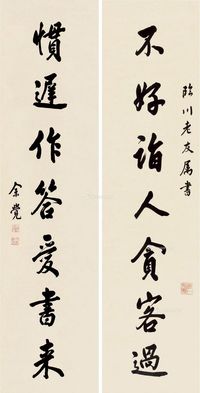 臨川老友属書
不好詣人貪客過
慣遲作答愛書来
余覺